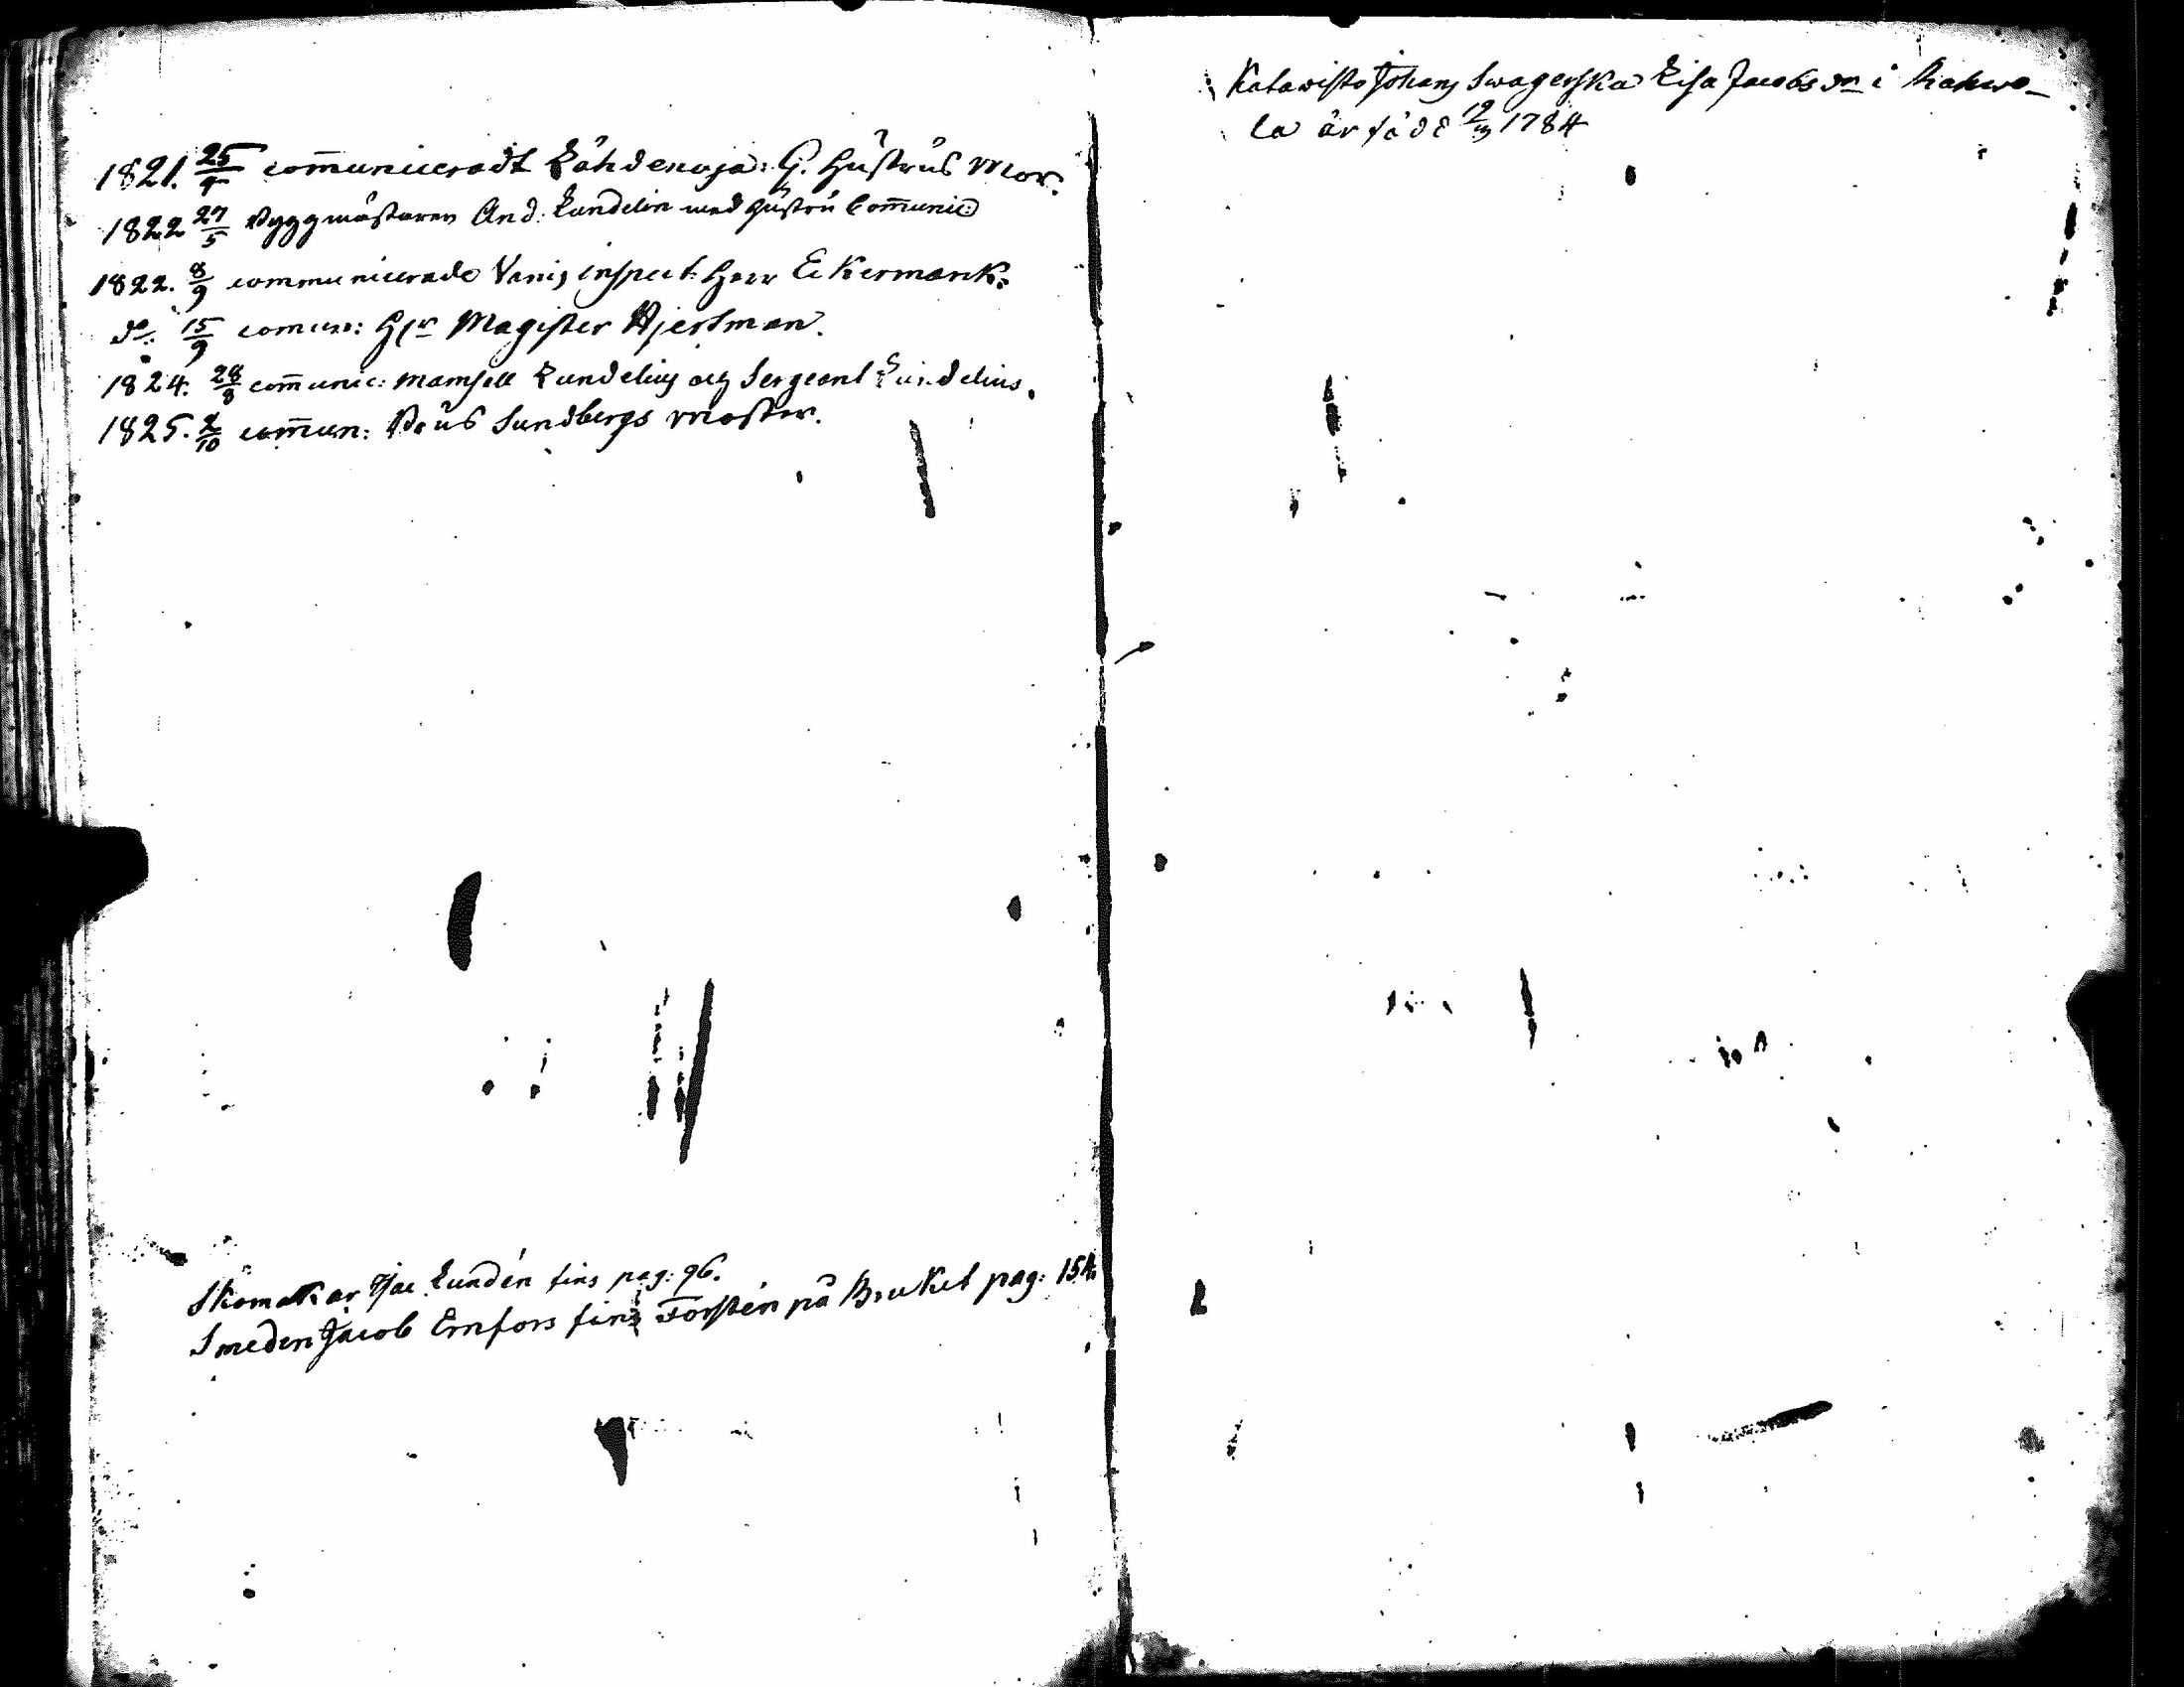 1821. 25/9 com̅uniceradt Lähdenoja: G. hustrus Mor.
1822 27/5 Byggmästaren And: Lundelin med hustru Com̅unic:
1822. 8/9 communicerade Vanis inspect: Herr Eckermark.
do. 15/9 comun: H/r Magister Hjertman.
1824. 28/8 com̅unic: Mamsell Lundelius och Sergeant Lundelius.
1825. 2/10 com̅un: Sundbergs moster.
Skomakar Isac Lundén fins pag: 96.
Smeden Jacob Ernfors fins Torstén på Bruket pag: 154.
Katawisto Johans Swagerska Lisa Jacobs dr i
la är född 12/3 1784